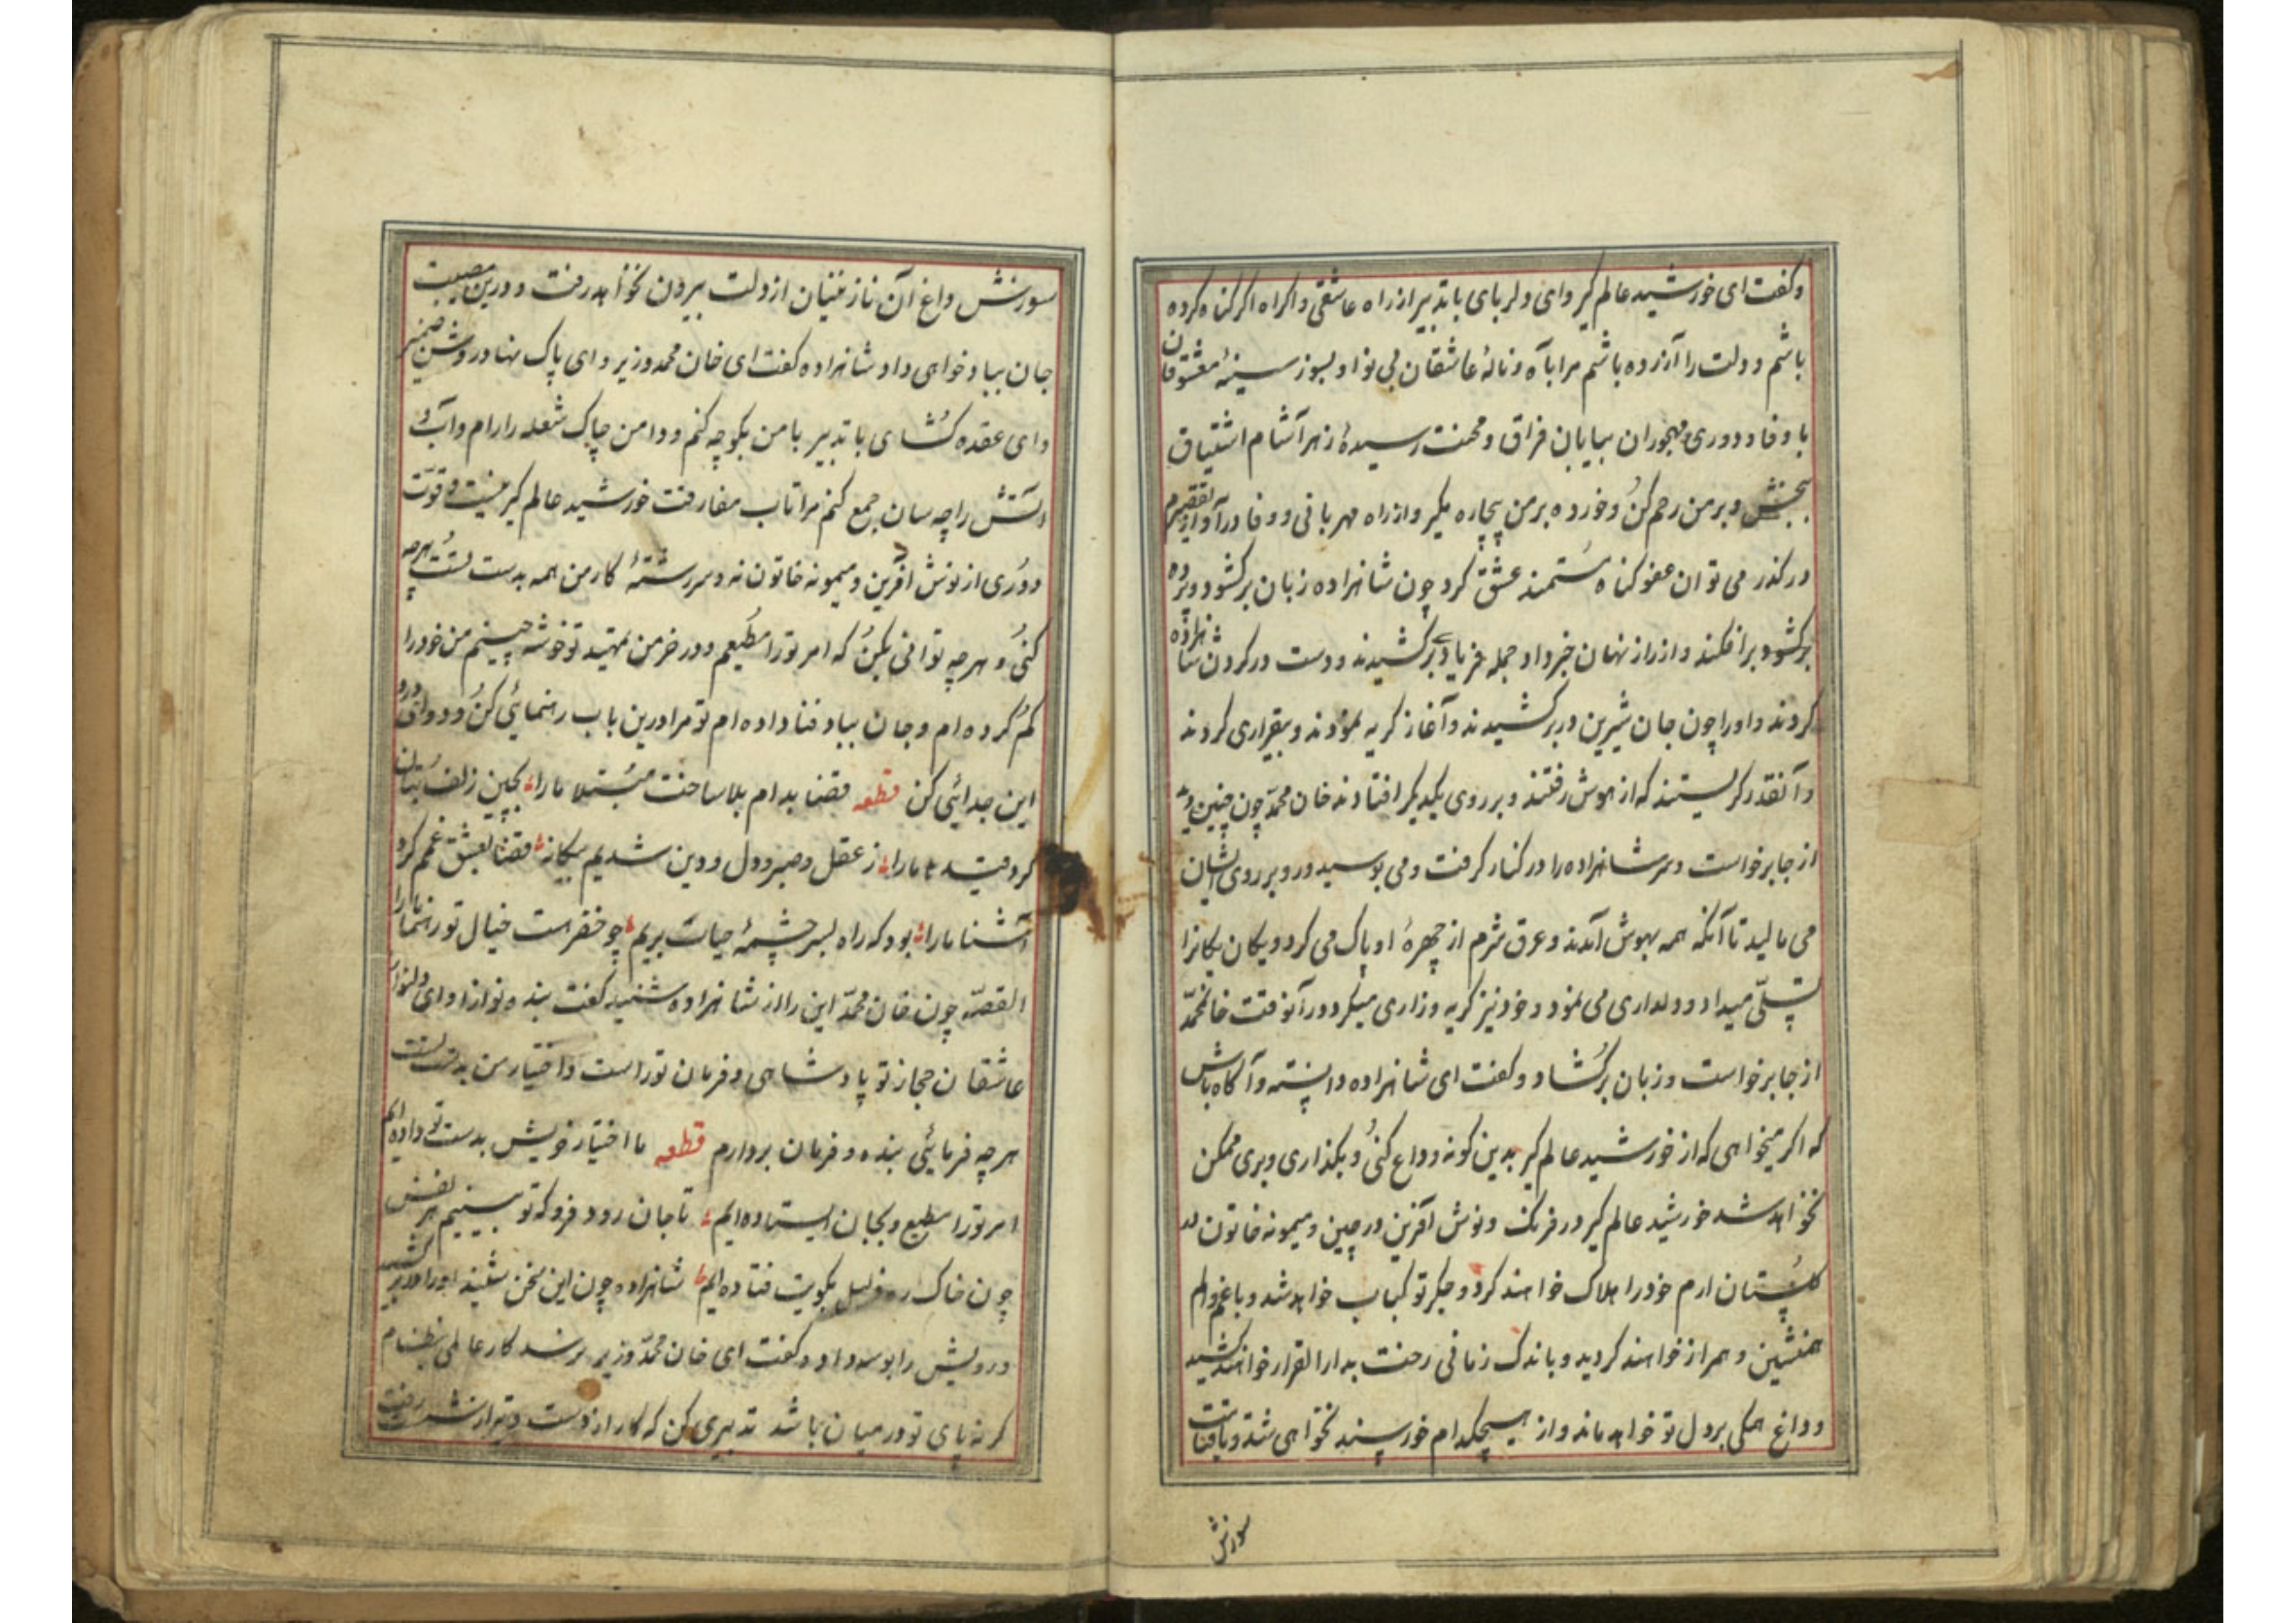 وکفت ای خورشید عالم کیر وای دلربای با تدبیر از راه عاشقی واکراه اکر کناه کرده
باشم و دلت را آزرده باشم مرا بآه و نالهٔ عاشقان بی نوا و بسوز سینهٔ معشوقان
با وفا و دوری مهجوران بیابان فراق و محنت رسیدهٔ زهر آشام اشتیاق
ببخش و بر من رحم کن و خورده بر من بیچاره مکیر و از راه مهربانی و وفا درآ و از تقصیرم
درکذر می توان عفو کناه مستمند عشق کرد چون شاهزاده زبان برکشود و پرده
برکشود برافکند و از راز نهان خبر داد جمله فریاد برکشیدند و دست در کردن شاهزاده
کردند و او را چون جان شیرین در برکشیدند و آغاز کریه نمودند و بیقراری کردند
و آنقدر کریستند که از هوش رفتند و بر روی یکدیکر افتادند خان محمد چون چنین دید
از جا برخواست و سر شاهزاده را در کنار کرفت و می بوسید و رو بر روی ایشان
می مالید تا آنکه همه بهوش آمدند و عرق شرم از چهرهٔ او پاک می کرد و یکان یکانرا
تسلّی میداد و دلداری می نمود و خود نیز کریه و زاری میکرد در آنوقت خانمحمّد
از جا برخواست و زبان برکشاد و کفت ای شاهزاده دانسته و آکاه باش
که اکر میخواهی که از خورشید عالم کیر بدین کونه وداع کنی و بکذاری و بری ممکن
نخواهد شد خورشید عالم کیر در فرنک و نوش آفرین در چین و میمونه خاتون در
کلستان ارم خود را هلاک خواهند کرد و جکر تو کباب خواهد شد و با غم و الم
همنشین و همراز خواهند کردید و باندک زمانی رخت بدار القرار خواهند کشید
و داغ همکی بر دل تو خواهد ماند و از هیچکدام خورسند نخواهی شد و تا قیامت
سوزش
سوزش داغ آن نازنینان از دلت بیرون نخواهد رفت و درین مصیبت
جان بباد خواهی داد شاهزاده کفت ای خان محمد وزیر و ای پاک نهاد روشن ضمیر
و ای عقده کشای با تدبیر با من بکو چه کنم و دامن چاک شعله را رام و آب و
آتش را چه سان جمع کنم مرا تاب مفارقت خورشید عالم کیر نیست و قوّت
دوری از نوش آفرین و میمونه خاتون نه و سررشتهٔ کار من همه بدست تست هرچه
کنی و هرچه توانی بکن که امر تو را مطیعم و در خرمن تمهید تو خوشه چینم من خود را
کم کرده ام و جان بباد فنا داده ام تو مرا درین باب رهنمائی کن و دوای درد
این جدائی کن قطعه قضا بدام بلا ساخت مبتلا ما را بچین زلف بتان
کرد قید ما را ز عقل و صبر و دل و دین شدیم بیکانه قضا بعشق غم کرد
آشنا ما را بود که راه بسر چشمهٔ حیات بریم چو خضر است خیال تو رهنما ما را
القصّه چون خان محمّد این را از شاهزاده شنید کفت بنده نوازا و ای دلنواز
عاشقان حجاز تو پادشاهی و فرمان تو راست و اختیار من بدست تست
هرچه فرمائی بنده و فرمان بردارم قطعه ما اختیار خویش بدست تو داده ایم
امر تو را مطیع و بجان ایستاده ایم تا جان رود فرو که تو بینیم هر نفس
چون خاک ره ذلیل بکویت فتاده ایم شاهزاده چون این سخن شنید او را در بر کشید
و رویش را بوسه داد و کفت ای خان محمّد وزیر نرسد کار عالمی بنظام
کر نه پای تو در میان باشد تدبیری کن که کار از دست و تیر از شست رفت